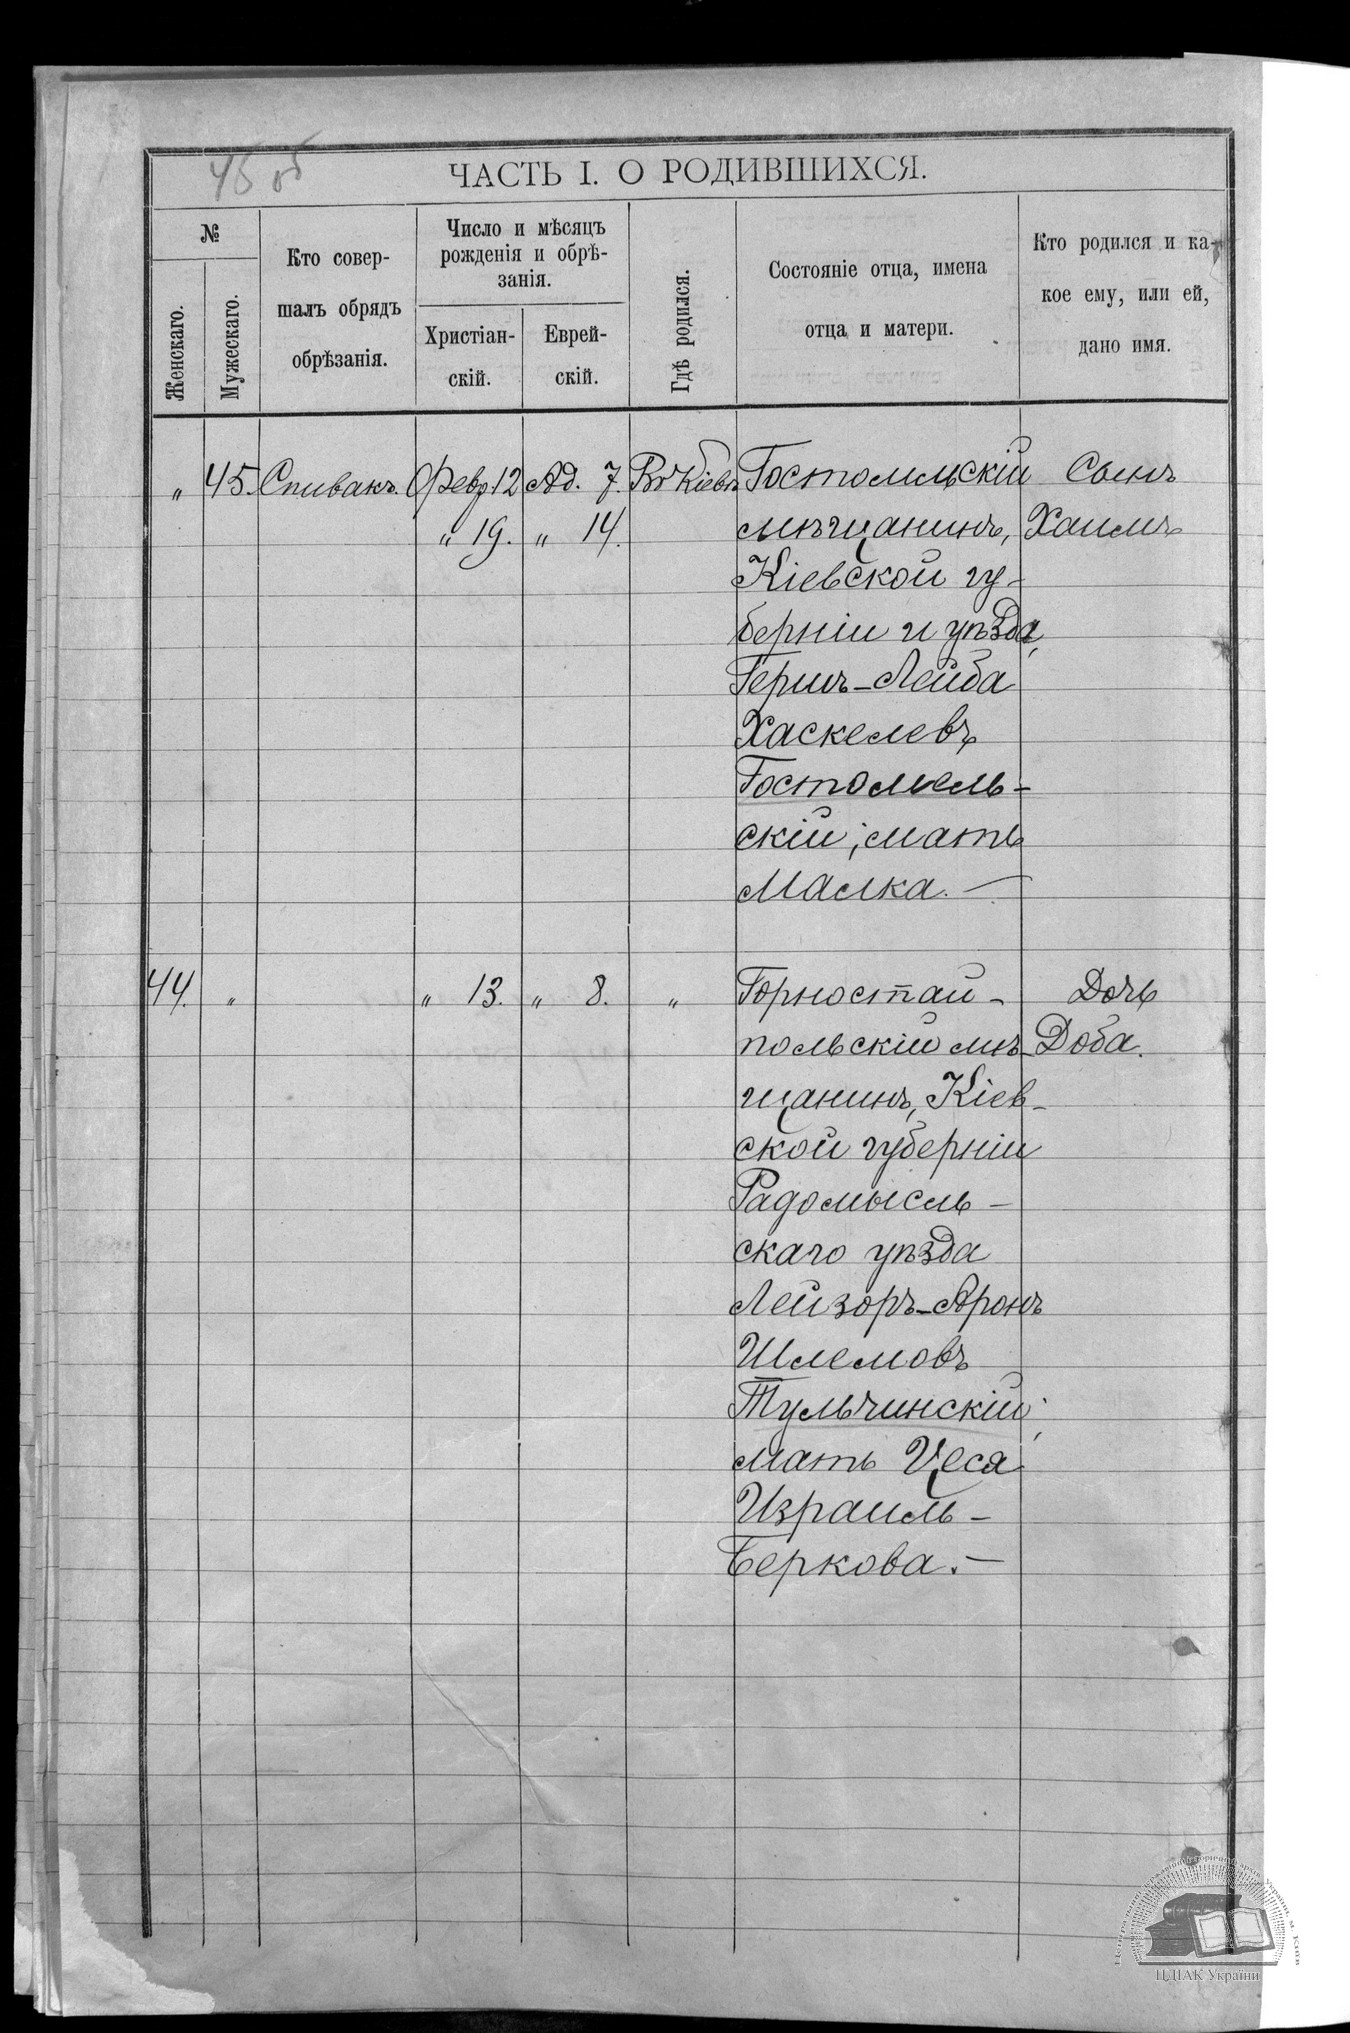 45 об
ЧАСТЬ I. О РОДИВШИХСЯ.
№
Женскаго.
Мужескаго.
Кто совер-
шалъ обрядъ
обрѣзанія.
Число и мѣсяцъ
рожденія и обрѣ-
занія.
Христіан-
скій.
Еврей-
скій.
Гдѣ родился.
Состояніе отца, имена
отца и матери.
Кто родился и ка-
кое ему, или ей,
дано имя.
„ 45. Спивакъ. Февр 12 Ад. 7. Въ Кіевѣ Гостомльскій Сынъ
„ 19. „ 14. мѣщанинъ, Хаимъ
Кіевской гу-
берніи и уѣзда,
Гершъ-Лейба
Хаскелевъ
Гостомель-
скій; мать
Малка. —
44. „ „ 13. „ 8. „ Горностай- Дочь
польскій мѣ- Доба.
щанинъ, Кіев-
ской губерніи
Радомысль-
скаго уѣзда
Лейзоръ-Аронъ
Шлемовъ
Тульчинскій;
мать Цеся
Израиль-
Беркова. —
ЦДІАК України